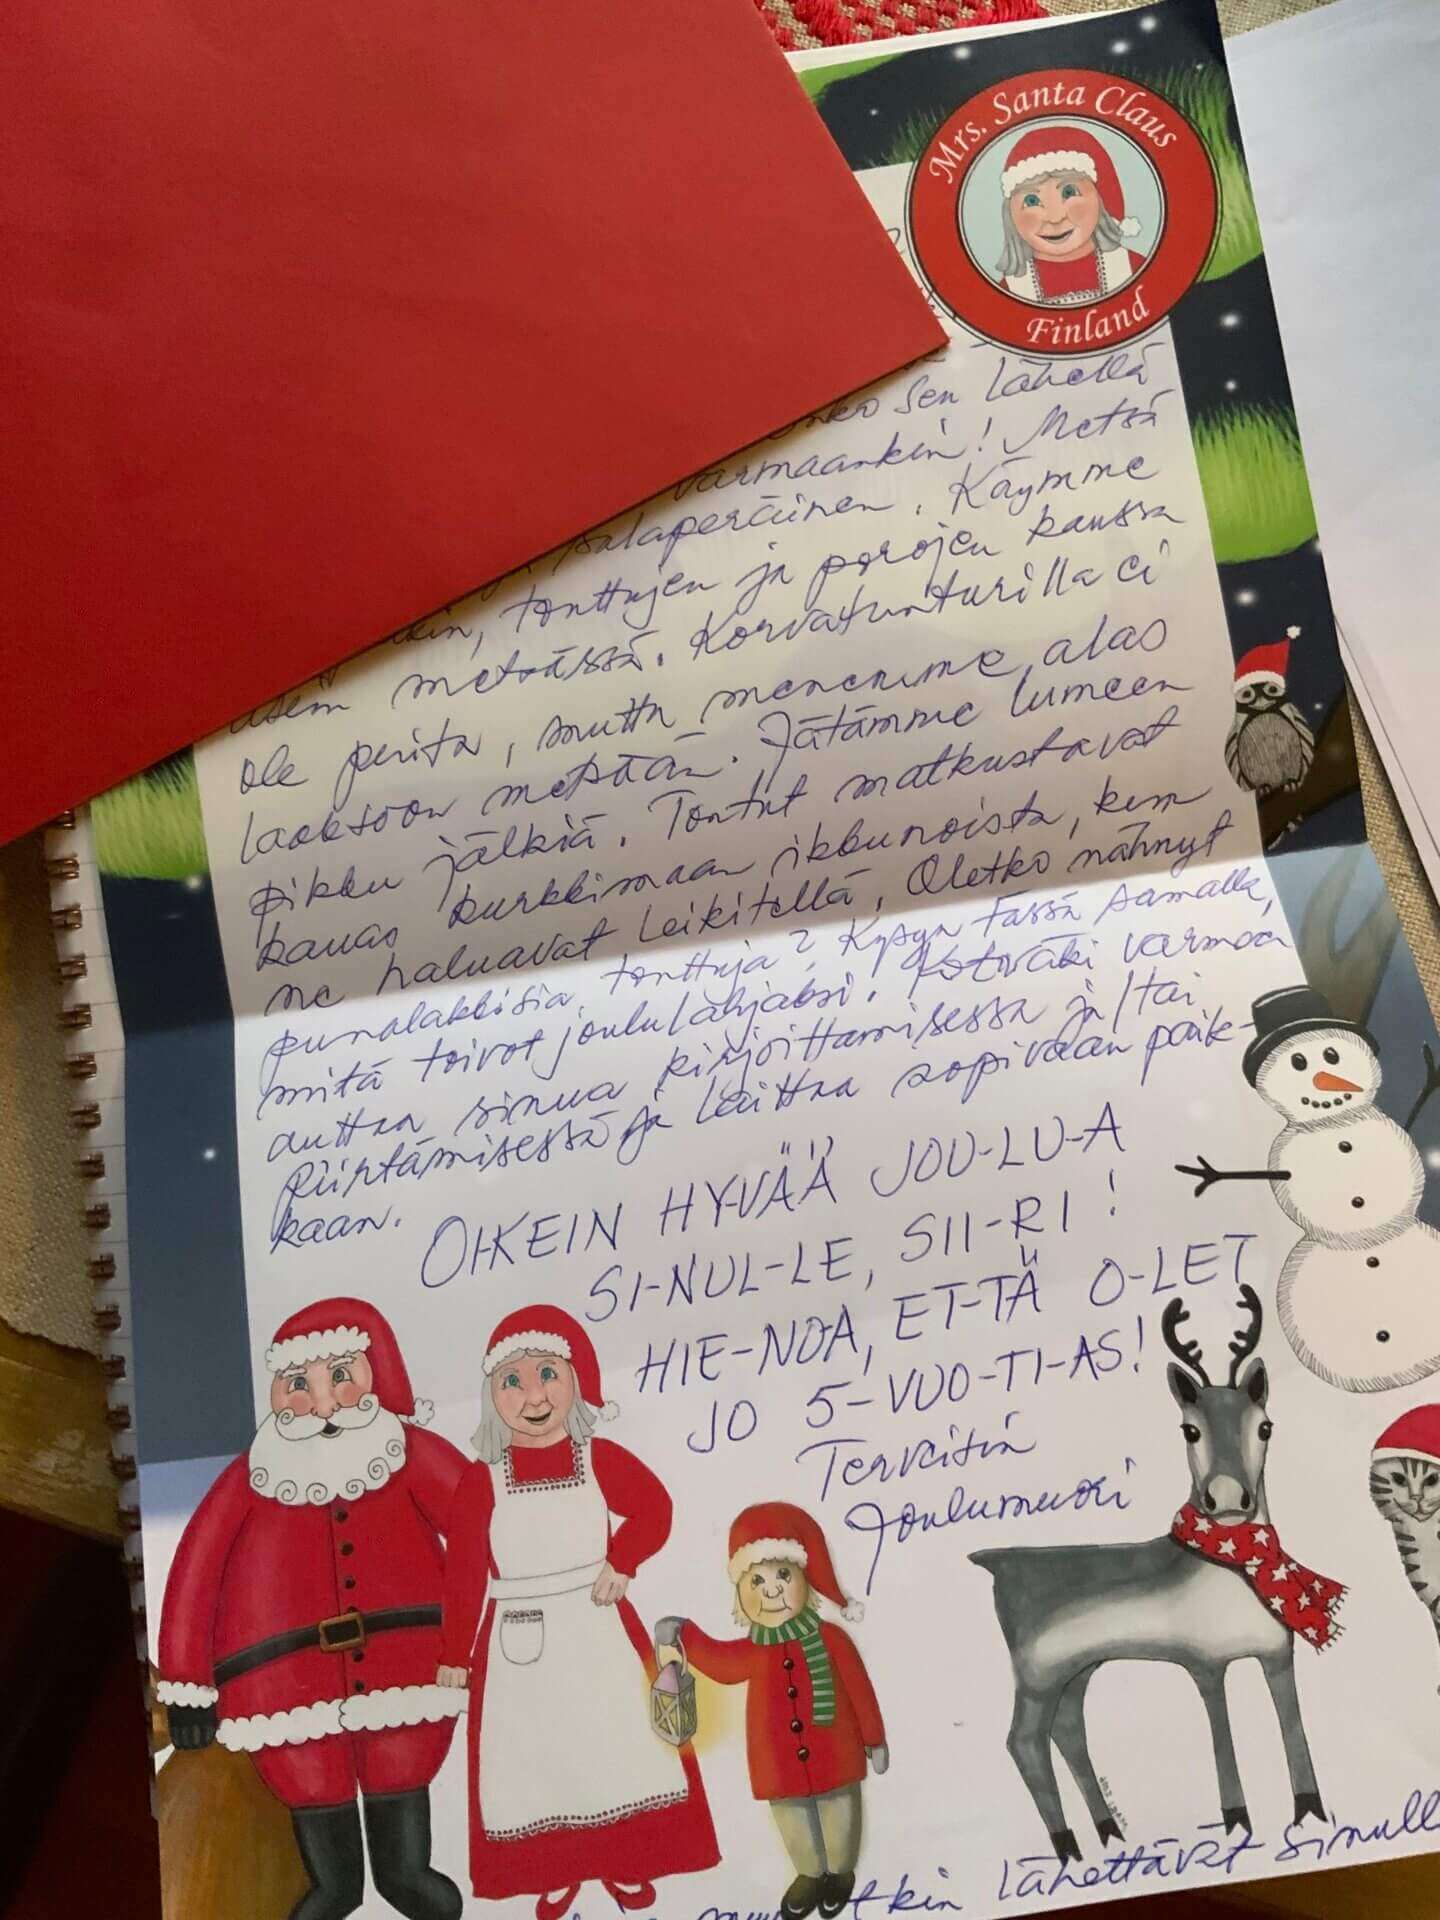 Mrs. Santa Claus
Finland
Sen lähellä
varmaankin! Metsä
salaperäinen. Käymme
tonttujen ja porojen kanssa
usein metsässä. Korvatunturilla ei
ole peritä, mutta menemme alas
laaksoon metsään. Jätämme lumeen
pikku jälkiä. Tontut matkustavat
kauas kurkkimaan ikkunoista, kun
ne haluavat leikitellä. Oletko nähnyt
punalakkisia tonttuja? Kysyn tässä samalla,
mitä toivot joululahjaksi. Kotiväki varmaan
auttaa sinua kirjoittamisessa ja/tai
piirtämisessä ja laittaa sopivaan paik-
kaan.
OI-KEIN HY-VÄÄ JOU-LU-A
SI-NUL-LE, SII-RI!
HIE-NOA, ET-TÄ O-LET
JO 5-VUO-TI-AS!
Terveisin
Joulumuori
lähettävät sinull